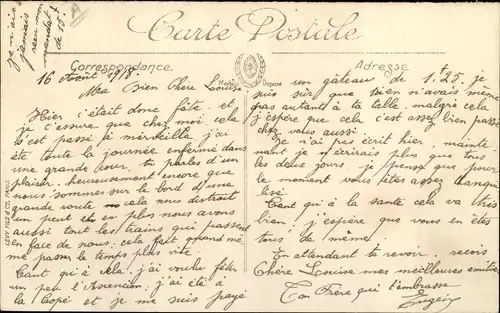 je n'ai
jamais
reçu mon
mandat
de 15 f
Carte Postale
Correspondance
Adresse
16 Août 1918.
Ma Bien Chère Louise
Hier c'était donc fête et
je t'assure que chez moi cela
s'est passé à merveille j'ai
été toute la journée enfermé dans
une grande cour, tu parles d'un
plaisir, heureusement encore que
nous sommes sur le bord d'une
grande route cela nous distrait
un peut et en plus nous avons
aussi tout les trains qui passent
en face de nous, cela fait quand même
passer le temps plus vite.
Tant qu'à cela, j'ai voulu fêter
un peu l'Ascencion, j'ai été a
la Copé et je me suis payé
un gâteau de 1f25. je
suis sûr que toi en n'avais même
pas autant à ta table, malgré cela
j'espère que cela c'est assez bien passé
chez vous aussi.
Je n'ai pas écrit hier, mainte
nant je n'écrirais plus que tous
les deux jours, je pense que pour
le moment vous êtes assez tranqui
lisé.
Tant qu'à la santé cela va très
bien, j'espère que vous en êtes
tous de même.
En attendant te revoir, reçois
Chère Louise mes meilleures amitiés
Ton Frère qui t'embrasse
Eugène
LEVY FILS & CO. PARIS